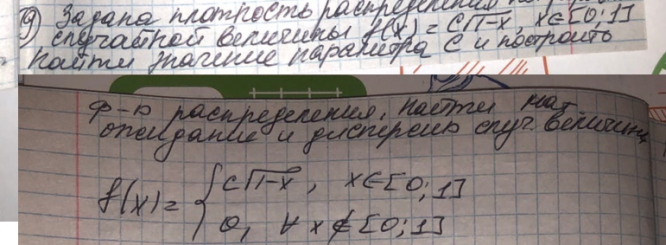 9) Задана плотность распределения
случайной величины f(x) = c√1-x, x∈[0;1]
найти значение параметра C и построить
ф-ю распределения, найти мат.
ожидание и дисперсию случ. величины
f(x) = { c√1-x, x∈[0;1]
0, ∀ x ∉ [0;1]